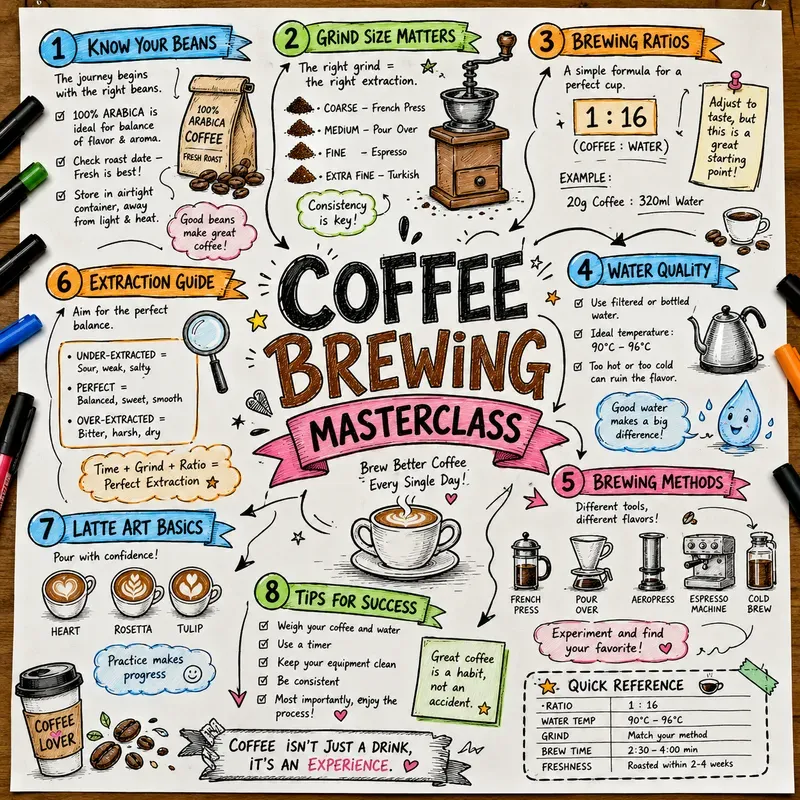 1 KNOW YOUR BEANS
The journey begins
with the right beans.
100% ARABICA is
ideal for balance
of flavor & aroma.
Check roast date –
Fresh is best!
Store in airtight
container, away
from light & heat.
100%
ARABICA
COFFEE
FRESH ROAST
Good beans
make great
coffee!
2 GRIND SIZE MATTERS
The right grind =
the right extraction.
• COARSE – French Press
• MEDIUM – Pour Over
• FINE – Espresso
• EXTRA FINE – Turkish
Consistency
is key!
3 BREWING RATIOS
A simple formula for a
perfect cup.
1 : 16
(COFFEE : WATER)
EXAMPLE :
20g Coffee : 320ml Water
Adjust to
taste, but
this is a
great
starting
point!
COFFEE
BREWING
MASTERCLASS
Brew Better Coffee
Every Single Day!
4 WATER QUALITY
Use filtered or bottled
water.
Ideal temperature:
90°C – 96°C
Too hot or too cold
can ruin the flavor.
Good water
makes a big
difference!
5 BREWING METHODS
Different tools,
different flavors!
FRENCH
PRESS
POUR
OVER
AEROPRESS
ESPRESSO
MACHINE
COLD
BREW
Experiment and find
your favorite!
6 EXTRACTION GUIDE
Aim for the perfect
balance.
• UNDER-EXTRACTED =
Sour, weak, salty
• PERFECT =
Balanced, sweet, smooth
• OVER-EXTRACTED =
Bitter, harsh, dry
Time + Grind + Ratio =
Perfect Extraction
7 LATTE ART BASICS
Pour with confidence!
HEART
ROSETTA
TULIP
Practice makes
progress
COFFEE
LOVER
8 TIPS FOR SUCCESS
Weigh your coffee and water
Use a timer
Keep your equipment clean
Be consistent
Most importantly, enjoy the
process!
Great coffee
is a habit,
not an
accident.
COFFEE ISN'T JUST A DRINK,
IT'S AN EXPERIENCE.
QUICK REFERENCE
•RATIO 1 : 16
WATER TEMP 90°C – 96°C
GRIND Match your method
BREW TIME 2:30 – 4:00 min
FRESHNESS Roasted within 2-4 weeks